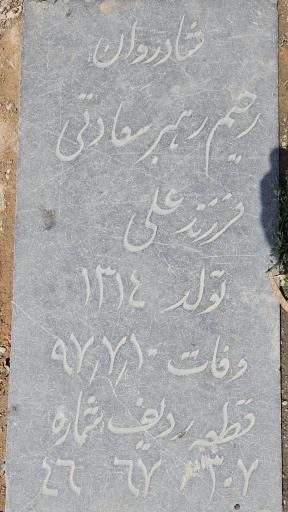 شادروان
رحیم رهبر سعادتی
فرزند علی
تولد ۱۳۱۴
وفات ۹۷/۷/۱۰
قطعه ردیف شماره
۱۰۷ ۶۷ ۴۶